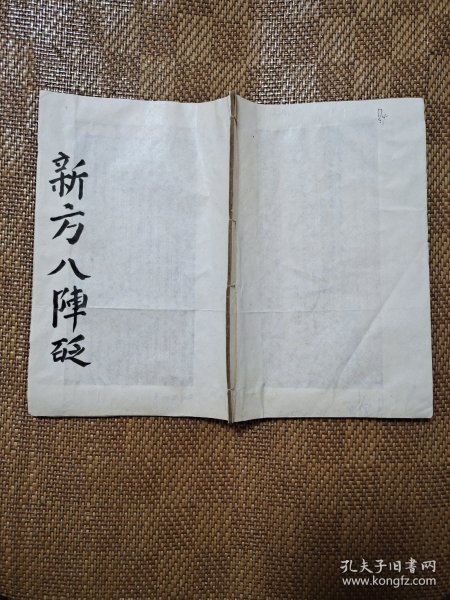 新方八陣砭
孔夫子旧书网
www.kongfz.com